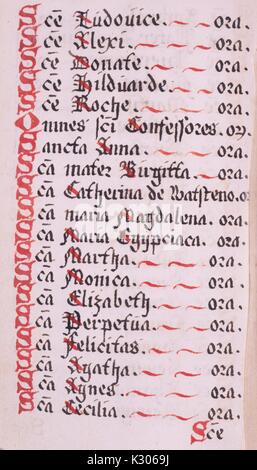 Scē Ludovice. ora.
Scē Alexi. ora.
Scē Donate. ora.
Scē Hilduarde. ora.
Scē Roche. ora.
Omnes sci Confessores. or.
Sancta Anna. ora.
Scā mater Birgitta. ora.
Scā Catherina de Watsteno. or
Scā maria Magdalena. ora.
Scā Maria Egypciaca. ora.
Scā Martha. ora.
Scā Monica. ora.
Scā Elizabeth. ora.
Scā Perpetua. ora.
Scā Felicitas. ora.
Scā Agatha. ora.
Scā Agnes. ora.
Scā Cecilia. ora.
Sce
alamy